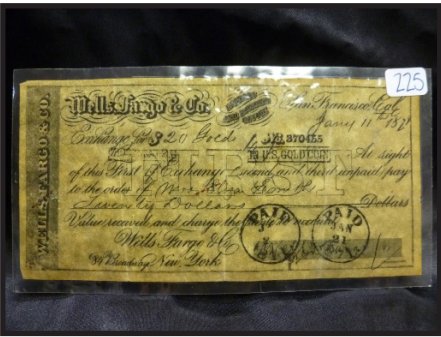 225
WELLS, FARGO & CO.
Wells, Fargo & Co. San Francisco, Cal.
Jany 11th 187
Exchange for $20 Gold No. 370455
IN U.S. GOLD COIN At Sight
FIRST
of this First of Exchange, second and third unpaid, pay
to the order of
Dollars
Value received and charge the same to account
Wells Fargo & Co
84 Broadway New York
PAID PAID
JAN
21